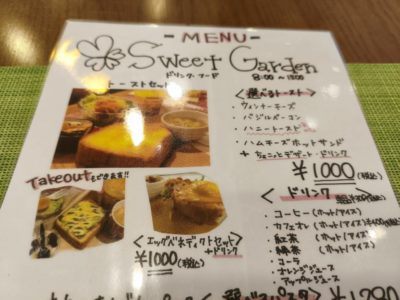 - MENU -
Sweet Garden
ドリンク・フード
8:00〜
トーストセット
<選べるトースト>
・ウィンナーチーズ
・バジルベーコン
・ハニートースト
・ハムチーズホットサンド
+ちょこっとデザート・ドリンク
¥1000(税込)
Takeoutもできます!!
<エッグベネディクトセット>
+ドリンク
¥1000(税込)
<ドリンク>
・コーヒー(ホット/アイス)
・カフェオレ(ホット/アイス)
・紅茶(ホット/アイス)
・緑茶(ホット/アイス)
・コーラ
・オレンジジュース
・アップルジュース